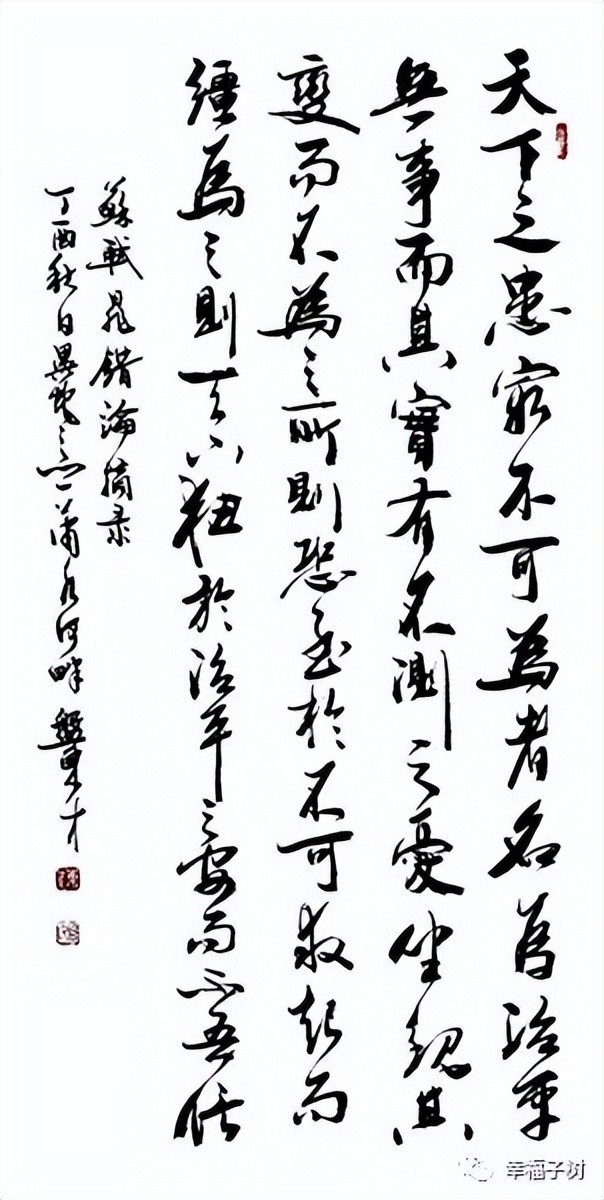 天下之患最不可為者名為治平
無事而其實有不測之憂坐觀其
變而不為之所則恐至於不可救起而
彊為之則天下狃於治平之安而不吾信
蘇軾晁錯論摘录
丁酉秋日於水河畔
幸福子树